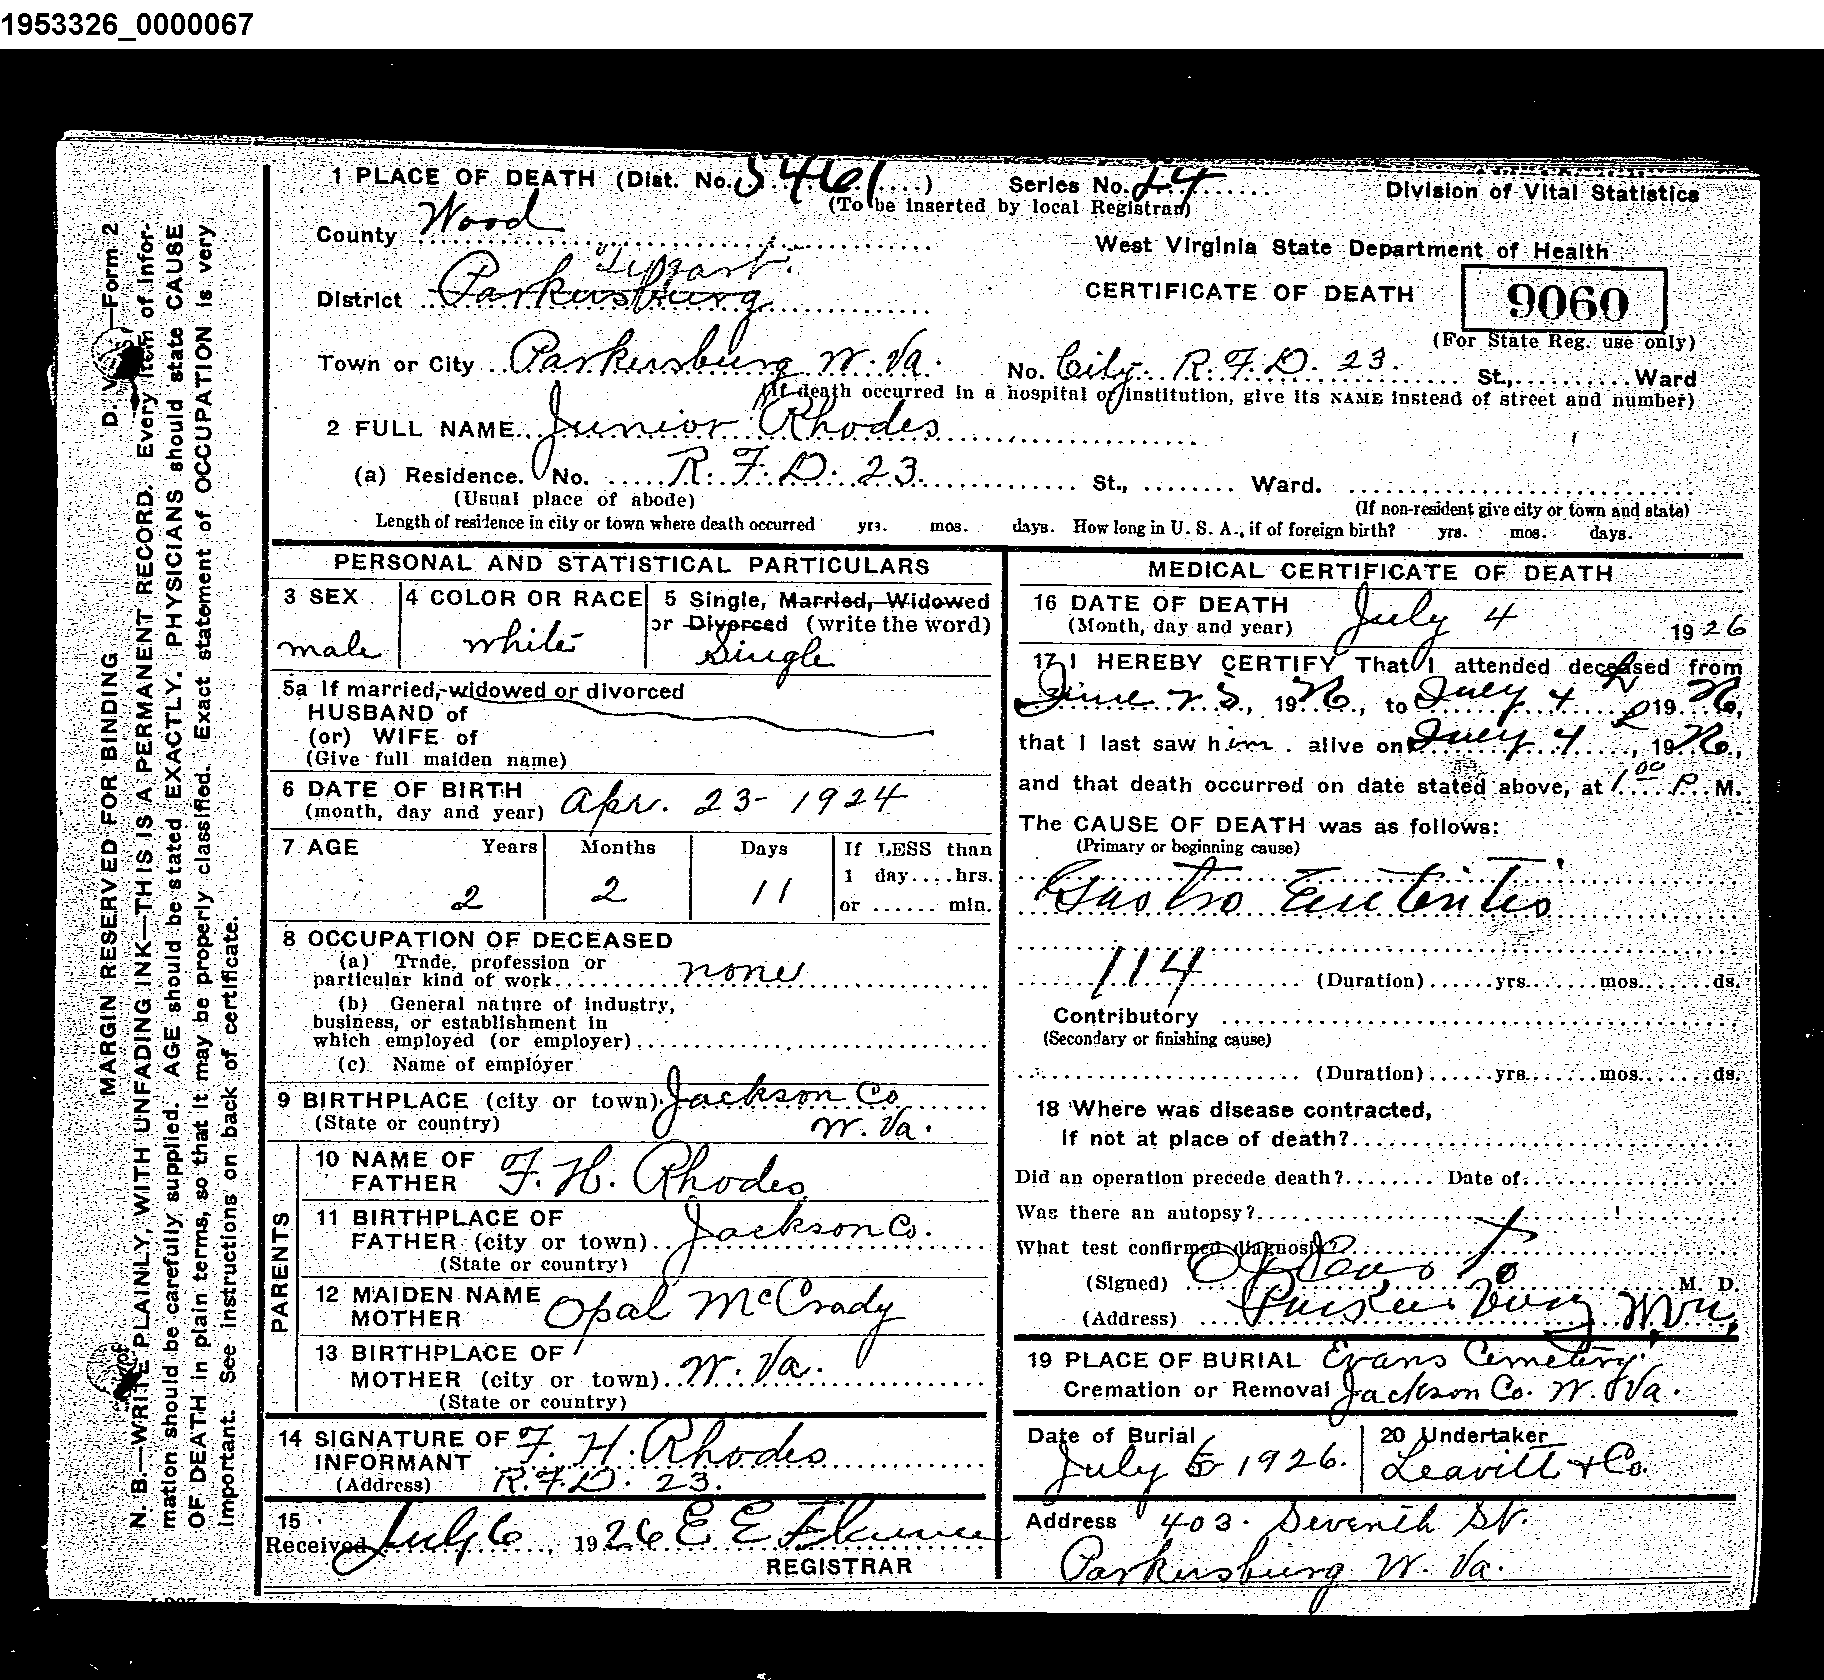 1953326_0000067
1 PLACE OF DEATH (Dist. No. 5461) Series No. 24 Division of Vital Statistics
(To be inserted by local Registrar)
County Wood
West Virginia State Department of Health
District Parkersburg
CERTIFICATE OF DEATH 9060
(For State Reg. use only)
Town or City Parkersburg W. Va. No. City R. F. D. 23. St., Ward
(If death occurred in a hospital or institution, give its NAME instead of street and number)
2 FULL NAME Junior Rhodes
(a) Residence. No. R. F. D. 23. St., Ward.
(Usual place of abode) (If non-resident give city or town and state)
Length of residence in city or town where death occurred yrs. mos. days. How long in U. S. A., if of foreign birth? yrs. mos. days.
PERSONAL AND STATISTICAL PARTICULARS
3 SEX 4 COLOR OR RACE 5 Single, Married, Widowed
or Divorced (write the word)
male white Single
5a If married, widowed or divorced
HUSBAND of
(or) WIFE of
(Give full maiden name)
6 DATE OF BIRTH
(month, day and year) Apr. 23 - 1924
7 AGE Years Months Days If LESS than
1 day....hrs.
or ...... min.
2 2 11
8 OCCUPATION OF DECEASED
(a) Trade, profession or
particular kind of work none
(b) General nature of industry,
business, or establishment in
which employed (or employer)
(c) Name of employer
9 BIRTHPLACE (city or town) Jackson Co
(State or country) W. Va.
PARENTS
10 NAME OF
FATHER F. H. Rhodes
11 BIRTHPLACE OF
FATHER (city or town) Jackson Co.
(State or country)
12 MAIDEN NAME
MOTHER Opal McCrady
13 BIRTHPLACE OF
MOTHER (city or town) W. Va.
(State or country)
14 SIGNATURE OF
INFORMANT F. H. Rhodes
(Address) R.F.D. 23.
15
Received July 6, 1926 E E
REGISTRAR
MEDICAL CERTIFICATE OF DEATH
16 DATE OF DEATH
(Month, day and year) July 4 1926
17 I HEREBY CERTIFY That I attended deceased from
June 25, 1926, to July 4 1926,
that I last saw him alive on July 4, 1926,
and that death occurred on date stated above, at 1 00 P. M.
The CAUSE OF DEATH was as follows:
(Primary or beginning cause)
Gastro Enteritis
114 (Duration) yrs. mos. ds.
Contributory
(Secondary or finishing cause)
(Duration) yrs. mos. ds.
18 Where was disease contracted,
if not at place of death?
Did an operation precede death? Date of
Was there an autopsy?
What test confirmed diagnosis?
(Signed) M. D.
(Address) Parkersburg W Va
19 PLACE OF BURIAL Evans Cemetery
Cremation or Removal Jackson Co. W. Va.
Date of Burial
July 5 1926.
20 Undertaker
Leavitt & Co.
Address 403. Seventh St.
Parkersburg W. Va.
D. V. —Form 2
MARGIN RESERVED FOR BINDING
N. B.—WRITE PLAINLY, WITH UNFADING INK—THIS IS A PERMANENT RECORD. Every item of infor-
mation should be carefully supplied. AGE should be stated EXACTLY. PHYSICIANS should state CAUSE
OF DEATH in plain terms, so that it may be properly classified. Exact statement of OCCUPATION is very
important. See instructions on back of certificate.